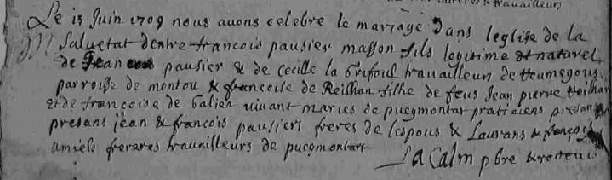 Le 15 Juin 1709 nous avons celebre le mariage dans leglise de la
Salvetat dentre francois pausier masson fils legitime et naturel
de Jean pausier & de cecille la travailleur de
parroisse de montou & francoise de Reilhan filhe de feus Jean pierre Reilhan
et de francoise de Galien vivant maries de puegmontar praticiens
presens jean & francois pausiers freres de & Laurans & francois
amiels freres travailleurs de puegmontar
La Calm pbre & recteur